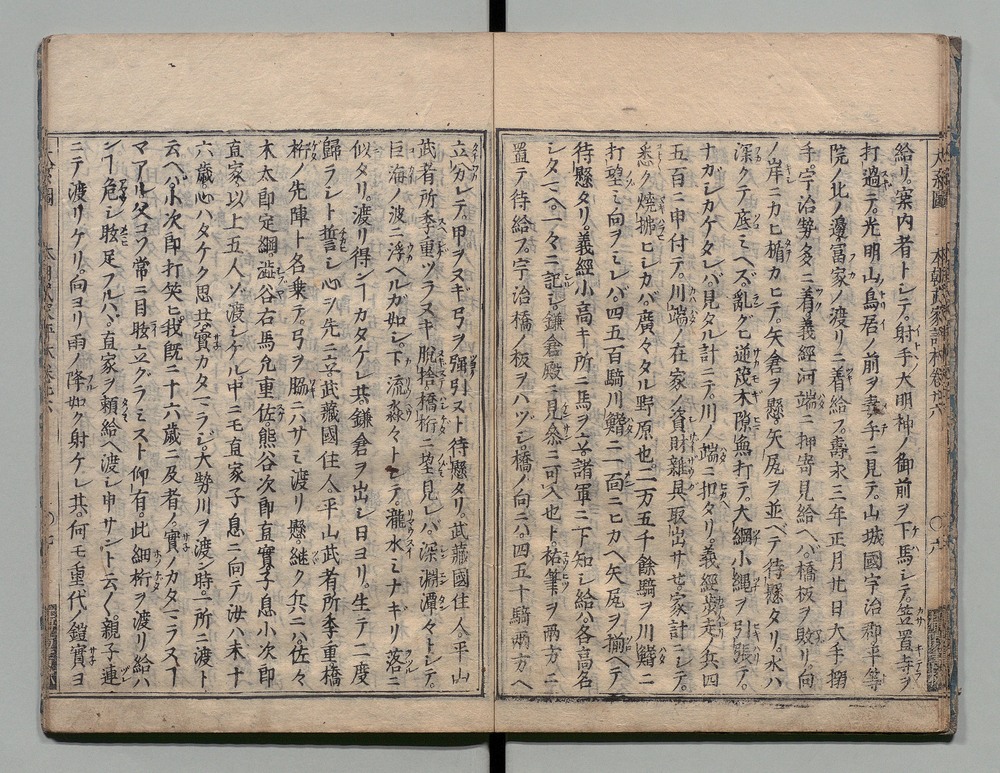 給リ。案内者トシテ。射手大明神ノ御前ヲ下馬シテ。笠置寺ヲ
打過ニテ。光明山鳥居ノ前ヲ妻手ニ見テ。山城國宇治郡平等
院ノ北ノ邊冨家ノ渡リニ着給フ。壽永三年正月廿日大手搦
手。宇治勢多ニ着。義經河端ニ押寄見給ヘバ。橋板ヲ敗リ。向
ノ岸ニカヒ楯カヒテ。矢倉ヲ懸。矢尻ヲ並ベテ待懸タリ。水ハ
深クテ底ミヘズ。亂グヒ逆茂木隙無打テ。大綱小縄ヲ引張テ。
ナガシカケタレバ。見タル計ニテ。川ノ端ニ扣タリ。義經歩走ノ兵四
五百ニ申付テ。川端ノ在家ノ資財雜具取出サセ家計ニシテ。
悉ク焼拂ヒシカバ。廣々タル野原也。二万五千餘騎ヲ川鰭ニ
打望ミ向ヲミレバ。四五百騎川鰭ニ一面ニヒカヘ矢尻ヲ揃ヘテ
待懸タリ。義經小高キ所ニ馬ヲ立。諸軍ニ下知シ給。各高名
シタマヘ。一々ニ記シ。鎌倉殿ニ見參ニ可入也ト。祐筆ヲ兩方ニ
置テ待給フ。宇治橋ノ板ヲハヅシ。橋ノ向ニハ。四五十騎兩方ヘ
立分レテ。甲ヲヌギ弓ヲ彊引ヌト待懸タリ。武藏國住人。平山
武者所季重ツラヌキ脫捨橋桁ニ望見レバ。深淵潭々トシテ。
巨海ノ波ニ浮ヘルガ如シ。下流淼々トシテ。瀧水ミナギリ落ニ
似タリ。渡リ得ンヿカタケレ共。鎌倉ヲ出シ日ヨリ。生テ二度
歸ラシト誓シ心シ先ニ立。武藏國住人。平山武者所季重橋
桁ノ先陣ト名乗テ。弓ヲ脇ニハサミ渡リ懸。継ク兵ニハ。佐々
木太郎定綱。澁谷右馬允重佐。熊谷次郎直實。子息小次郎
直家。以上五人ゾ渡シケル中ニモ直家子息ニ向テ汝ハ未十
六歳。心ハタケク思共。實カタマラジ。大勢川ヲ渡ン時。一所ニ渡ト
云ヘハ。小次郎打笑ヒ。我既ニ十六歳ニ及者ノ。實ノカタマラヌヿ
マアル。父コソ常ニ目眩立グラミスト仰有。此細桁ヲ渡リ給ハ
ンヿ危シ。眩足フルハヾ。直家ヲ頼給ヘ渡シ申サント云々。親子連
ニテ渡リケリ。向ヨリ雨ノ降如ク射ケレ共。何モ重代ノ鎧實ヨ